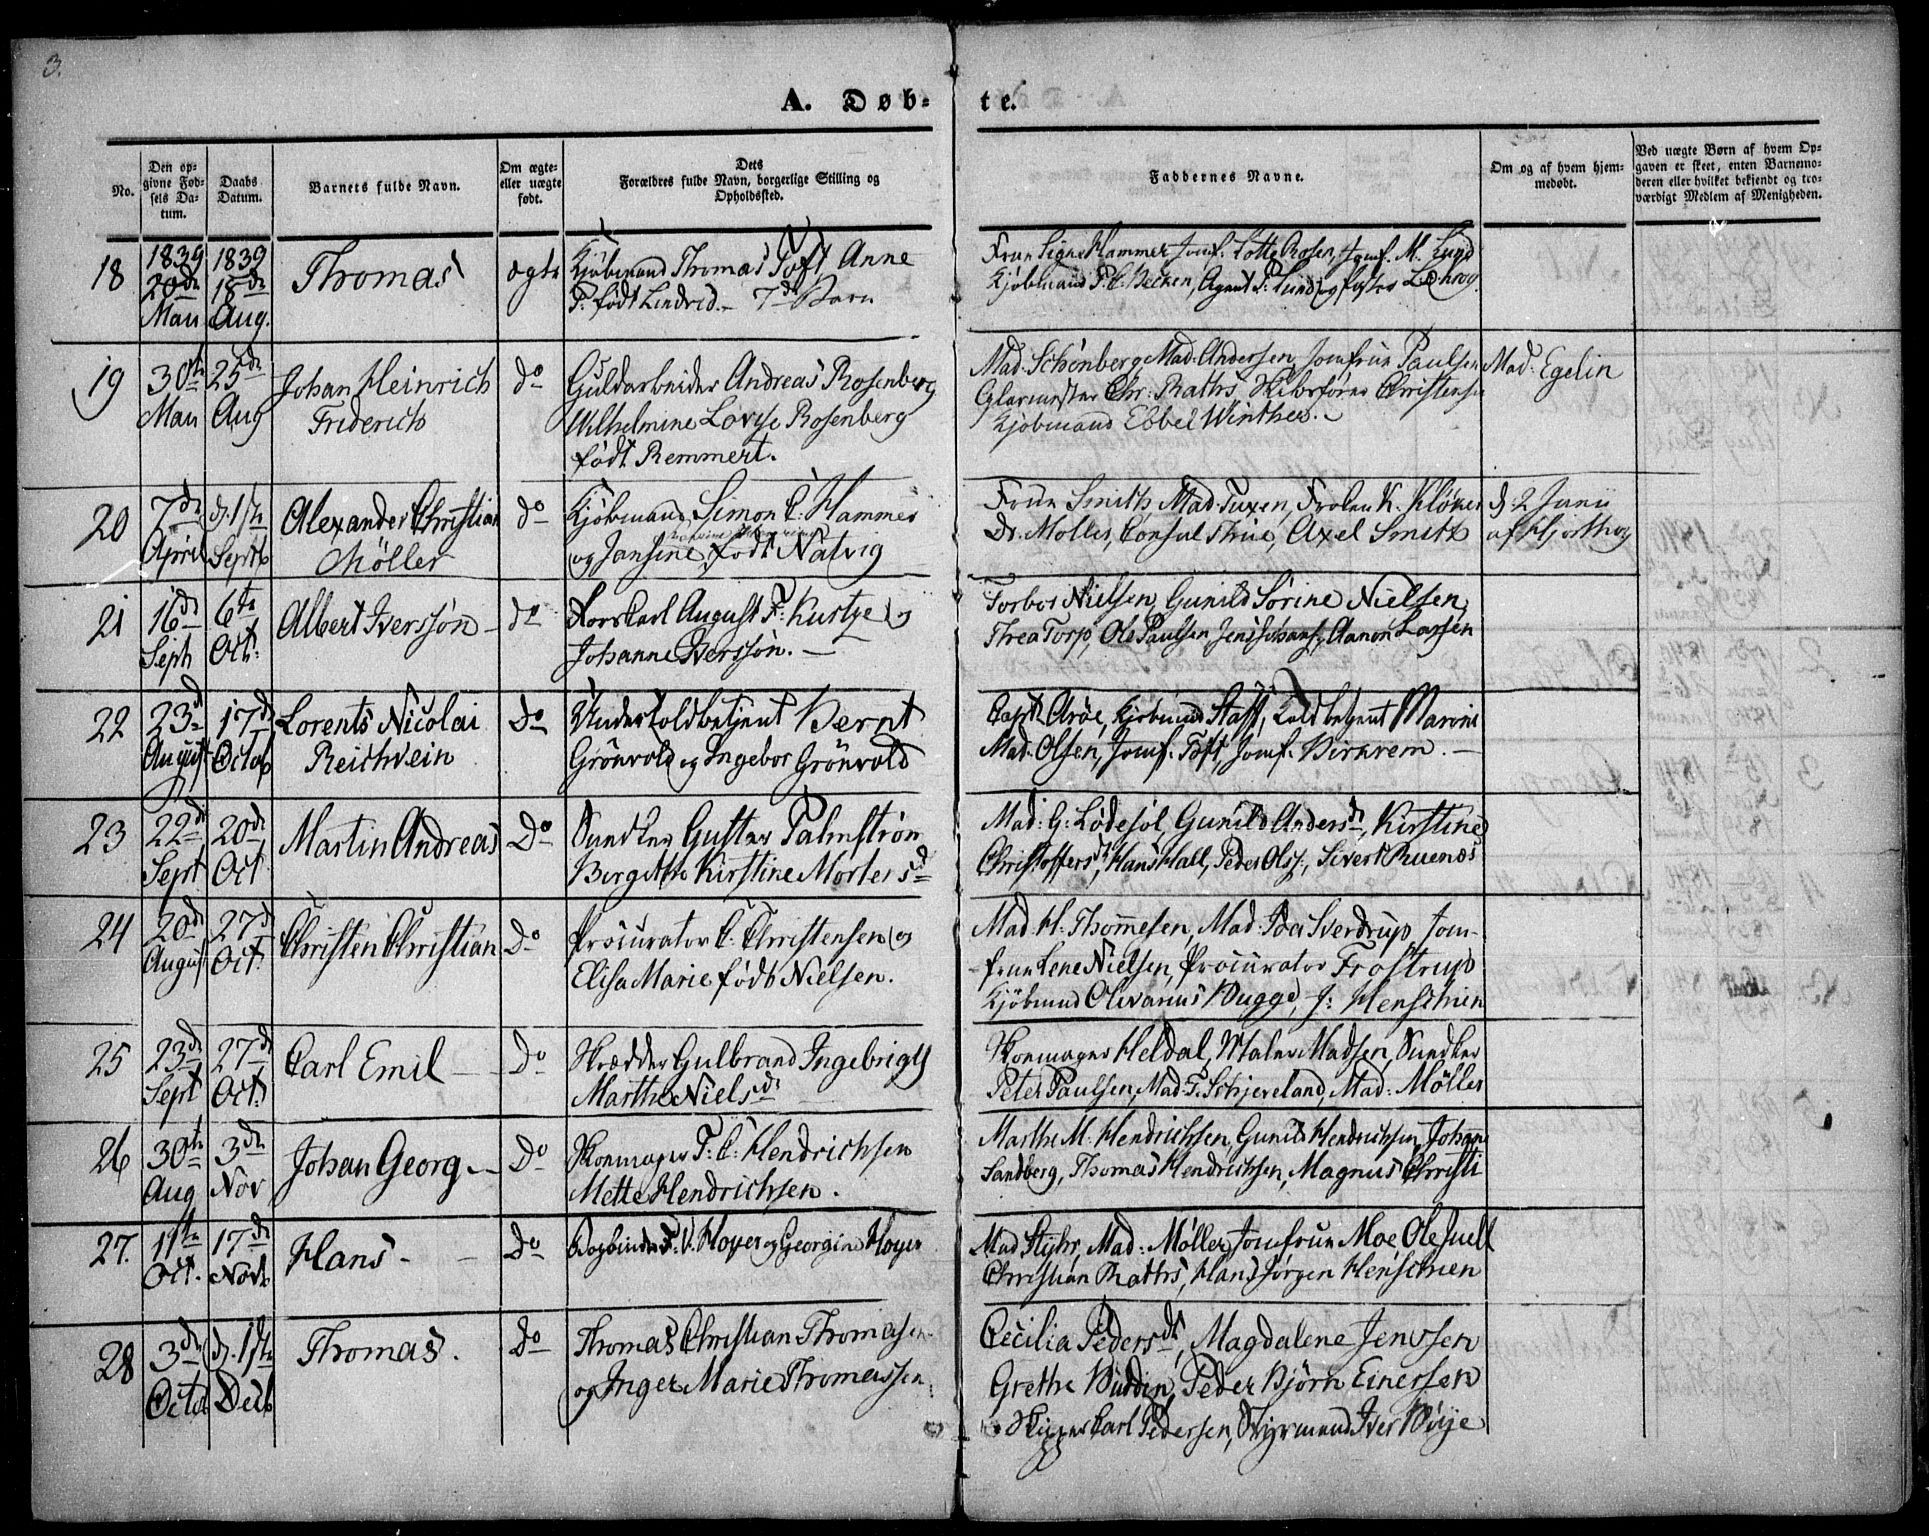 3.
A. Døb-te.
No.
Den op-
givne Fød-
sels Da-
tum.
Daabs
Datum.
Barnets fulde Navn.
Om ægte-
eller uægte
født.
Dets
Forældres fulde Navn, borgerlige Stilling og
Opholdssted.
Faddernes Navne.
Om og af hvem hjem-
medøbt.
Ved uægte Børn af hvem Op-
gaven er skeet, enten Barnemo-
deren eller hvilket bekjendt og tro-
værdigt Medlem af Menigheden.
18
1839
20de
Mai
1839
18de
Aug.
Thomas
ægte
Kjøbmand Thomas Toft Anne
T: født Lindvid.- 7de Barn
Frue Signe Hammer, Jomf. Lotte Rosen, Jomf. M. Lund
Kjøbmand F. C. Becken, Agent P. Lund og
19
30te
Mai
25de
Aug
Johan Heinrich
Friderich
do
Guldarbeider Andreas Rosenberg
Wilhelmine Lovise Rosenberg
født Remmert.
Mad. Schønberg, Mad: Andersen, Jomfrue Paulsen
Glarmester Chr: Raths, Skibsfører Christensen
Kjøbmand Ebbel Winther.
Mad: Egelin
20
7de
April
d. 1ste
Septb
Alexander Christian
Møller
do
Kjøbmand Simon C. Hammer
og Jansine født Natvig
Frue Smith, Mad. Tuxen, Frøken K. Kløker
Dr. Møller, Consul Thue, Axel Smith
d. 2 Junii
af Hjorthøg
21
16de
Sept
6te
Oct:
Albert Iversøn
do
Korskarl August F: Kustze og
Johanne Iversøn. —
Torbor Nielsen, Gunild Sørine Nielsen,
Thea Torp, Ole Paulsen, Jens Johans:, Aanon Lassen
22
23de
August
17de
Octob
Lorents Nicolai
Reichwein
Do
Undertoldbetjent Bernt
Grönvold og Ingebor Grönvold
Capt Arøe, Kjøbmand Staff, Toldbetjent Maroni
Mad. Olsen, Jomf. Toft, Jomf. Birkrem. —
23
22de
Sept
20de
Oct
Martin Andreas
Do
Snedker Gustav Palmstrøn
Bergitte Kirstine Mortensd
Mad: G: Lødesøl, Gunild Andersd, Kirstine
Christoffersd, Hans Hall, Peder Ols:, Sivert Ruenæs
24
20de
August
27de
Oct:
Christen Christian
Do
Procurator C: Christensen og
Elisa Marie født Nielsen.
Mad. H: Thommesen, Mad. Ida Sverdrup, Jom-
frue Lene Nielsen, Procurator Frostrup
Kjøbmand Olivarius Bugge, J: Henschien
25
23de
Sept
27de
Oct:
Carl Emil
Do
Skrædder Gulbrand Ingebrigts
Marthe Nielsdr
Skomager Heldal, Maler Madsen, Snedker
Peter Paulsen, Mad. T. Schjeveland, Mad: Møller
26
30te
Aug
3de
Nov
Johan Georg
Do
Skomager T: C: Hendrichsen
Mette Hendrichsen.
Marthe M. Hendrichsen, Gunild Hendrichsen, Johan
Sandberg, Thomas Hendrichsen, Magnus Christi
27.
11te
Oct.
17de
Novb
Hans
Do
Bogbinder P. V. Høyer og Georgine Høyer
Mad Styhr, Mad: Møller, Jomfrue Moe, Ole Juell
Christian Raths, Hans Jørgen Henschien
28
3de
Octob
d. 1ste
Decb
Thomas.
Do
Thomas Christian Thomasen
og Inger Marie Thomassen.
Cecilia Pedersdt, Magdalene Jenssen
Grethe Budden, Peder Bjørn Einersen
Skipper Carl Pedersen, Styrmand Iver Bøye